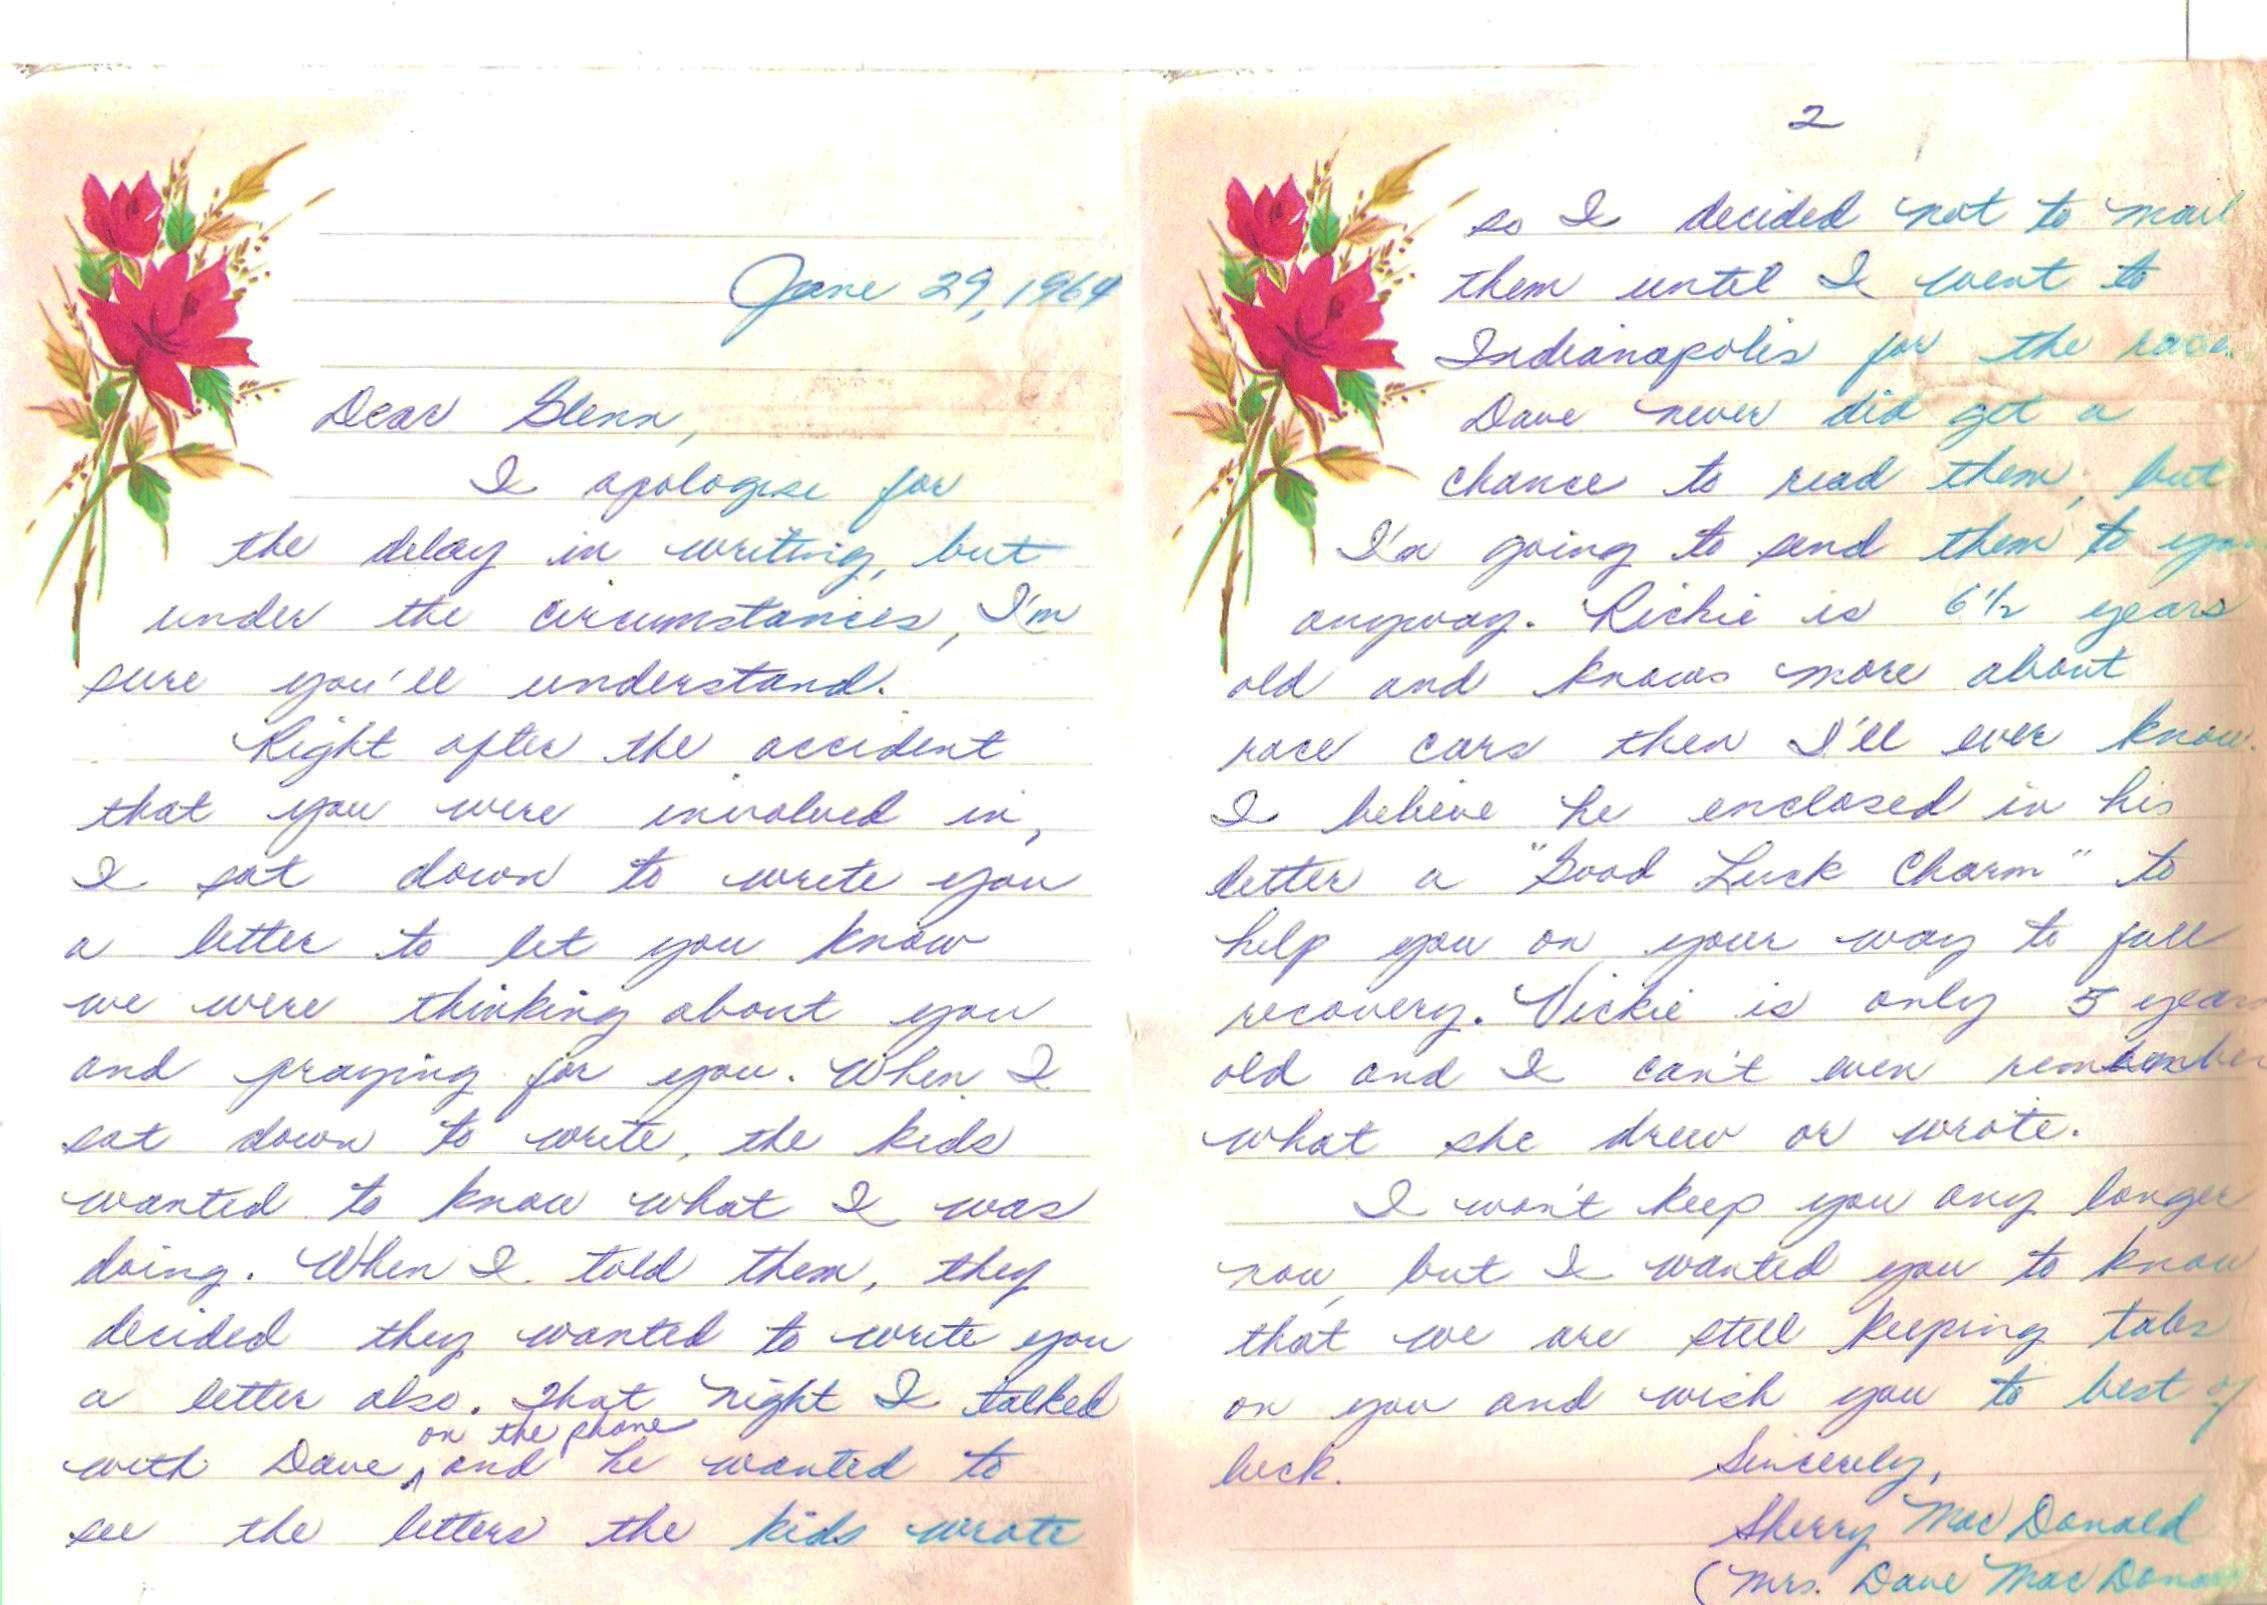 June 29, 1964
Dear Glenn,
I apologise for
the delay in writing, but
under the circumstances, I'm
sure you'll understand.
Right after the accident
that you were involved in,
I sat down to write you
a letter to let you know
we were thinking about you
and praying for you. When I
sat down to write, the kids
wanted to know what I was
doing. When I told them, they
decided they wanted to write you
a letter also. That night I talked
on the phone
with Dave ^ and he wanted to
see the letters the kids wrote
2
so I decided not to mail
them until I went to
Indianapolis for the race.
Dave never did get a
chance to read them, but
I'm going to send them to you
anyway. Richie is 6 1/2 years
old and knows more about
race cars then I'll ever know.
I believe he enclosed in his
letter a "Good Luck Charm" to
help you on your way to full
recovery. Vickie is only 5 years
old and I can't even remember
what she drew or wrote.
I won't keep you any longer
now, but I wanted you to know
that we are still keeping tabs
on you and wish you to best of
luck.
Sincerely,
Sherry MacDonald
(Mrs. Dave MacDonald